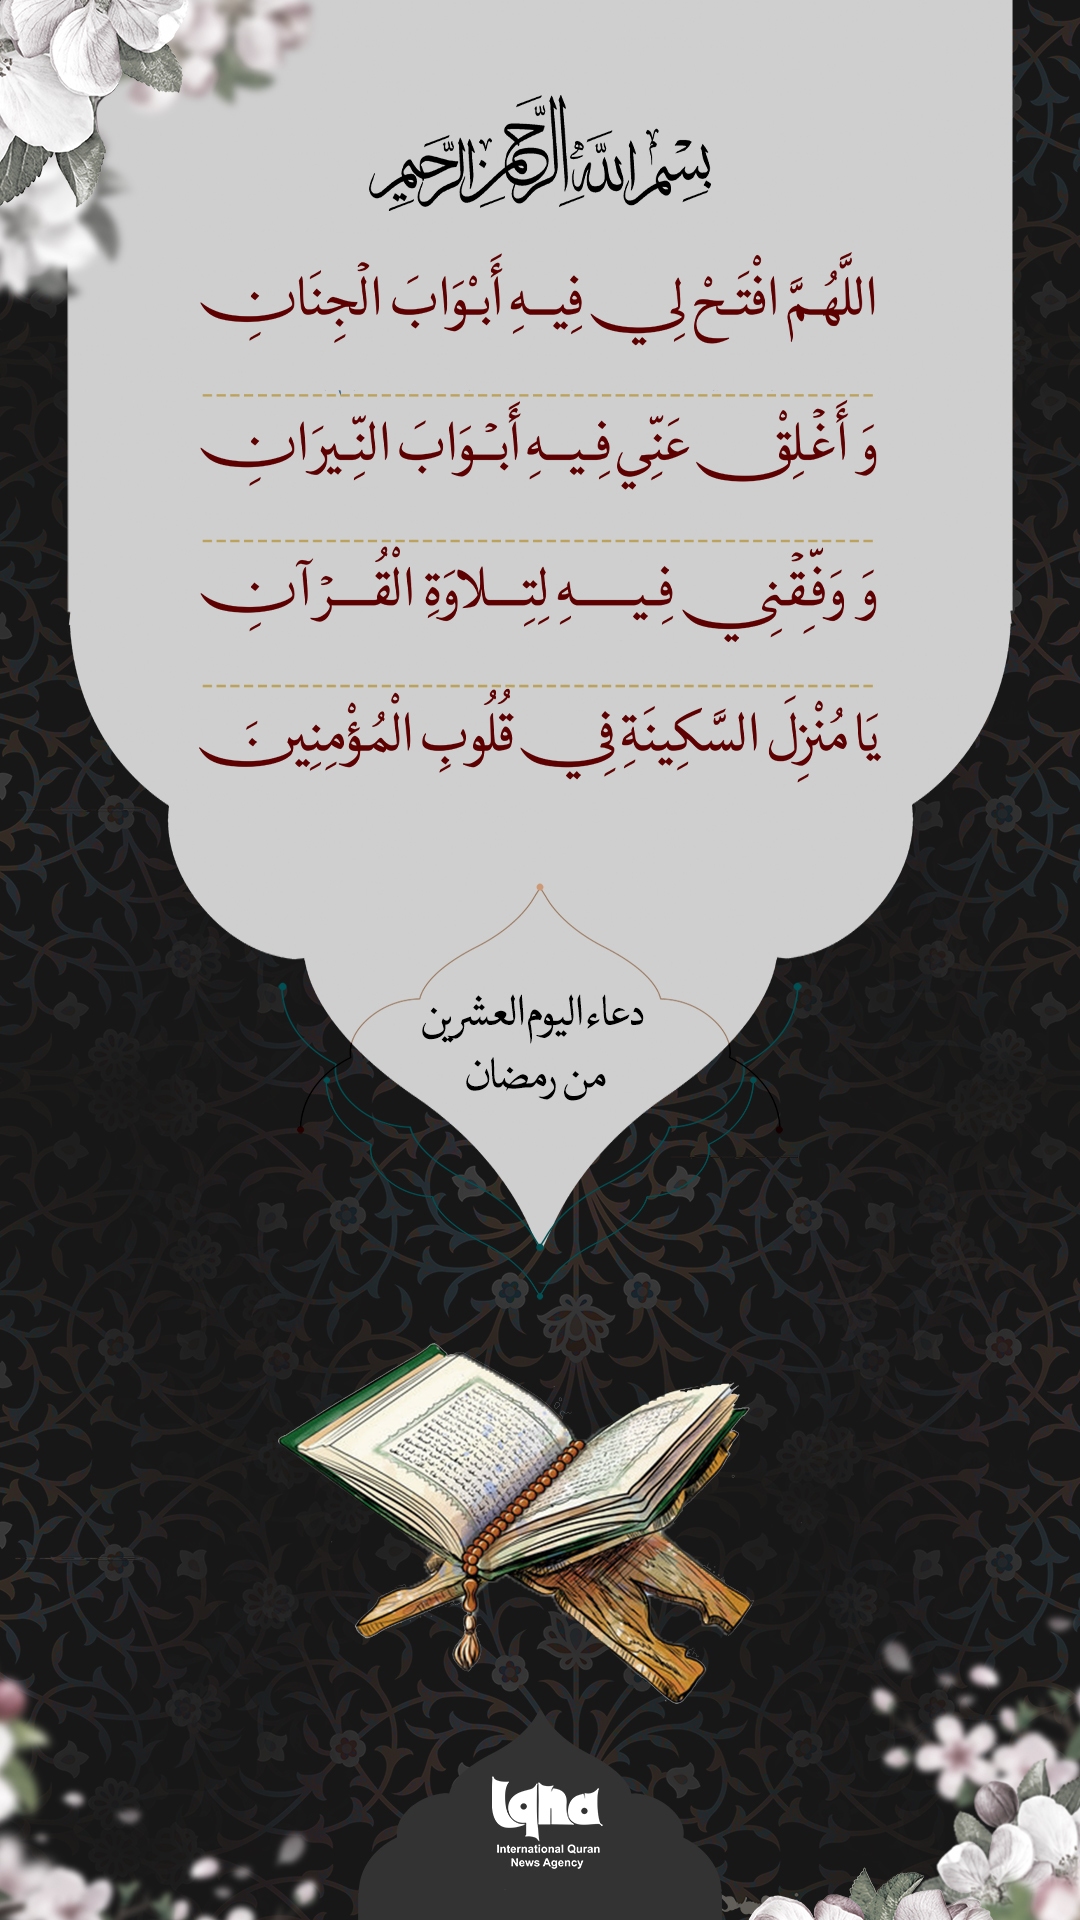 بِسْمِ اللَّهِ الرَّحْمَنِ الرَّحِيمِ
اللَّهُمَّ افْتَحْ لِي فِيهِ أَبْوَابَ الْجِنَانِ
وَ أَغْلِقْ عَنِّي فِيهِ أَبْوَابَ النِّيرَانِ
وَ وَفِّقْنِي فِيهِ لِتِلاوَةِ الْقُرْآنِ
يَا مُنْزِلَ السَّكِينَةِ فِي قُلُوبِ الْمُؤْمِنِينَ
دعاء اليوم العشرين
من رمضان
Iqna
International Quran
News Agency